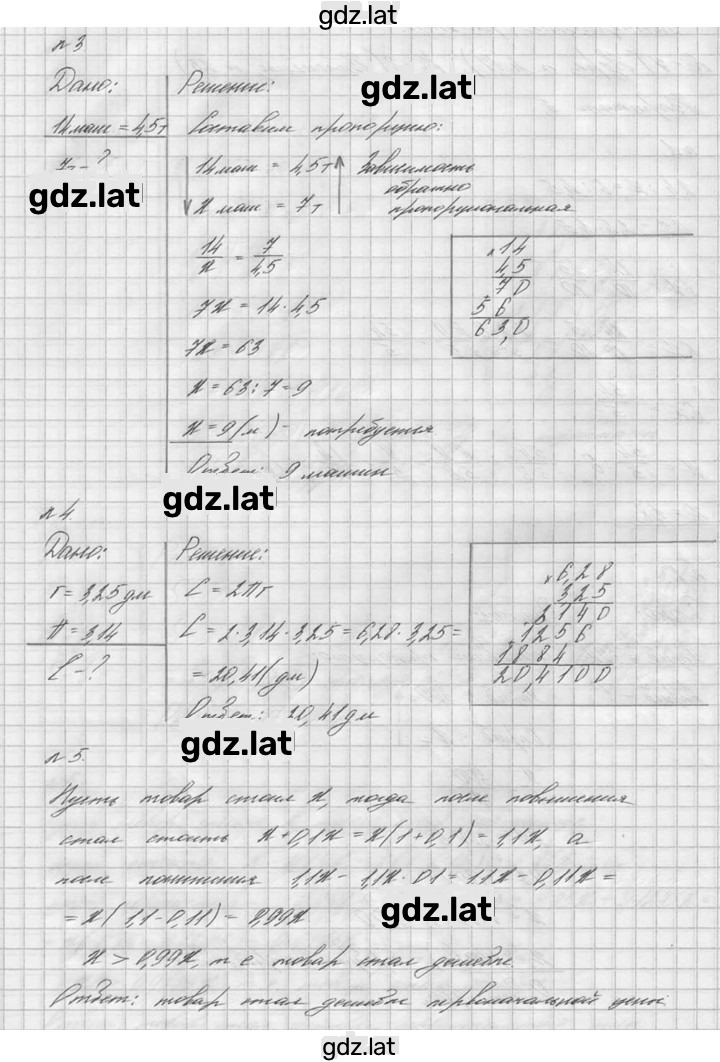 gdz.lat
№ 3
Дано: Решение:
gdz.lat
14 маш = 4,5 т Составим пропорцию:
7т - ? 14 маш = 4,5 т Зависимость
gdz.lat обратно
x маш = 7 т пропорциональная
14/x = 7/4,5
×14
4,5
70
56
63,0
7x = 14 · 4,5
7x = 63
x = 63 : 7 = 9
x = 9 (м) - потребуется
Ответ: 9 машин
gdz.lat
№ 4.
Дано: Решение:
r = 3,25 дм C = 2πr
π = 3,14 C = 2 · 3,14 · 3,25 = 6,28 · 3,25 =
C - ? = 20,41 (дм)
×6,28
3,25
3140
1256
1884
20,4100
Ответ: 20,41 дм
gdz.lat
№ 5.
Пусть товар стоил x, тогда после повышения
стал стоить x + 0,1x = x(1 + 0,1) = 1,1x, а
после понижения 1,1x - 1,1x · 0,1 = 1,1x - 0,11x =
= x(1,1 - 0,11) = 0,99x
gdz.lat
x > 0,99x, т е товар стал дешевле.
Ответ: товар стал дешевле первоначальной цены.
gdz.lat